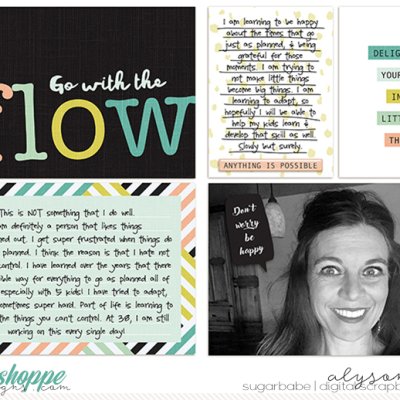 Go with the
flow
I am learning to be happy
about the times that go
just as planned, & being
grateful for those
moments. I am trying to
not make little things
become big things. I am
learning to adapt, so
hopefully I will be able to
help my kids learn &
develop that skill as well.
Slowly but surely.
ANYTHING IS POSSIBLE
DELIG
YOUR
IN
LITT
TH
This is NOT something that I do well.
am definitely a person that likes things
ned out. I get super frustrated when things do
planned. I think the reason is that I hate not
control. I have learned over the years that there
ible way for everything to go as planned all of
especially with 5 kids! I have tried to adapt,
sometimes super hard. Part of life is learning to
the things you can't control. At 38, I am still
working on this every single day!
Don't
worry
be
happy
shoppe
alyson
sugarbabe | digital scrapb